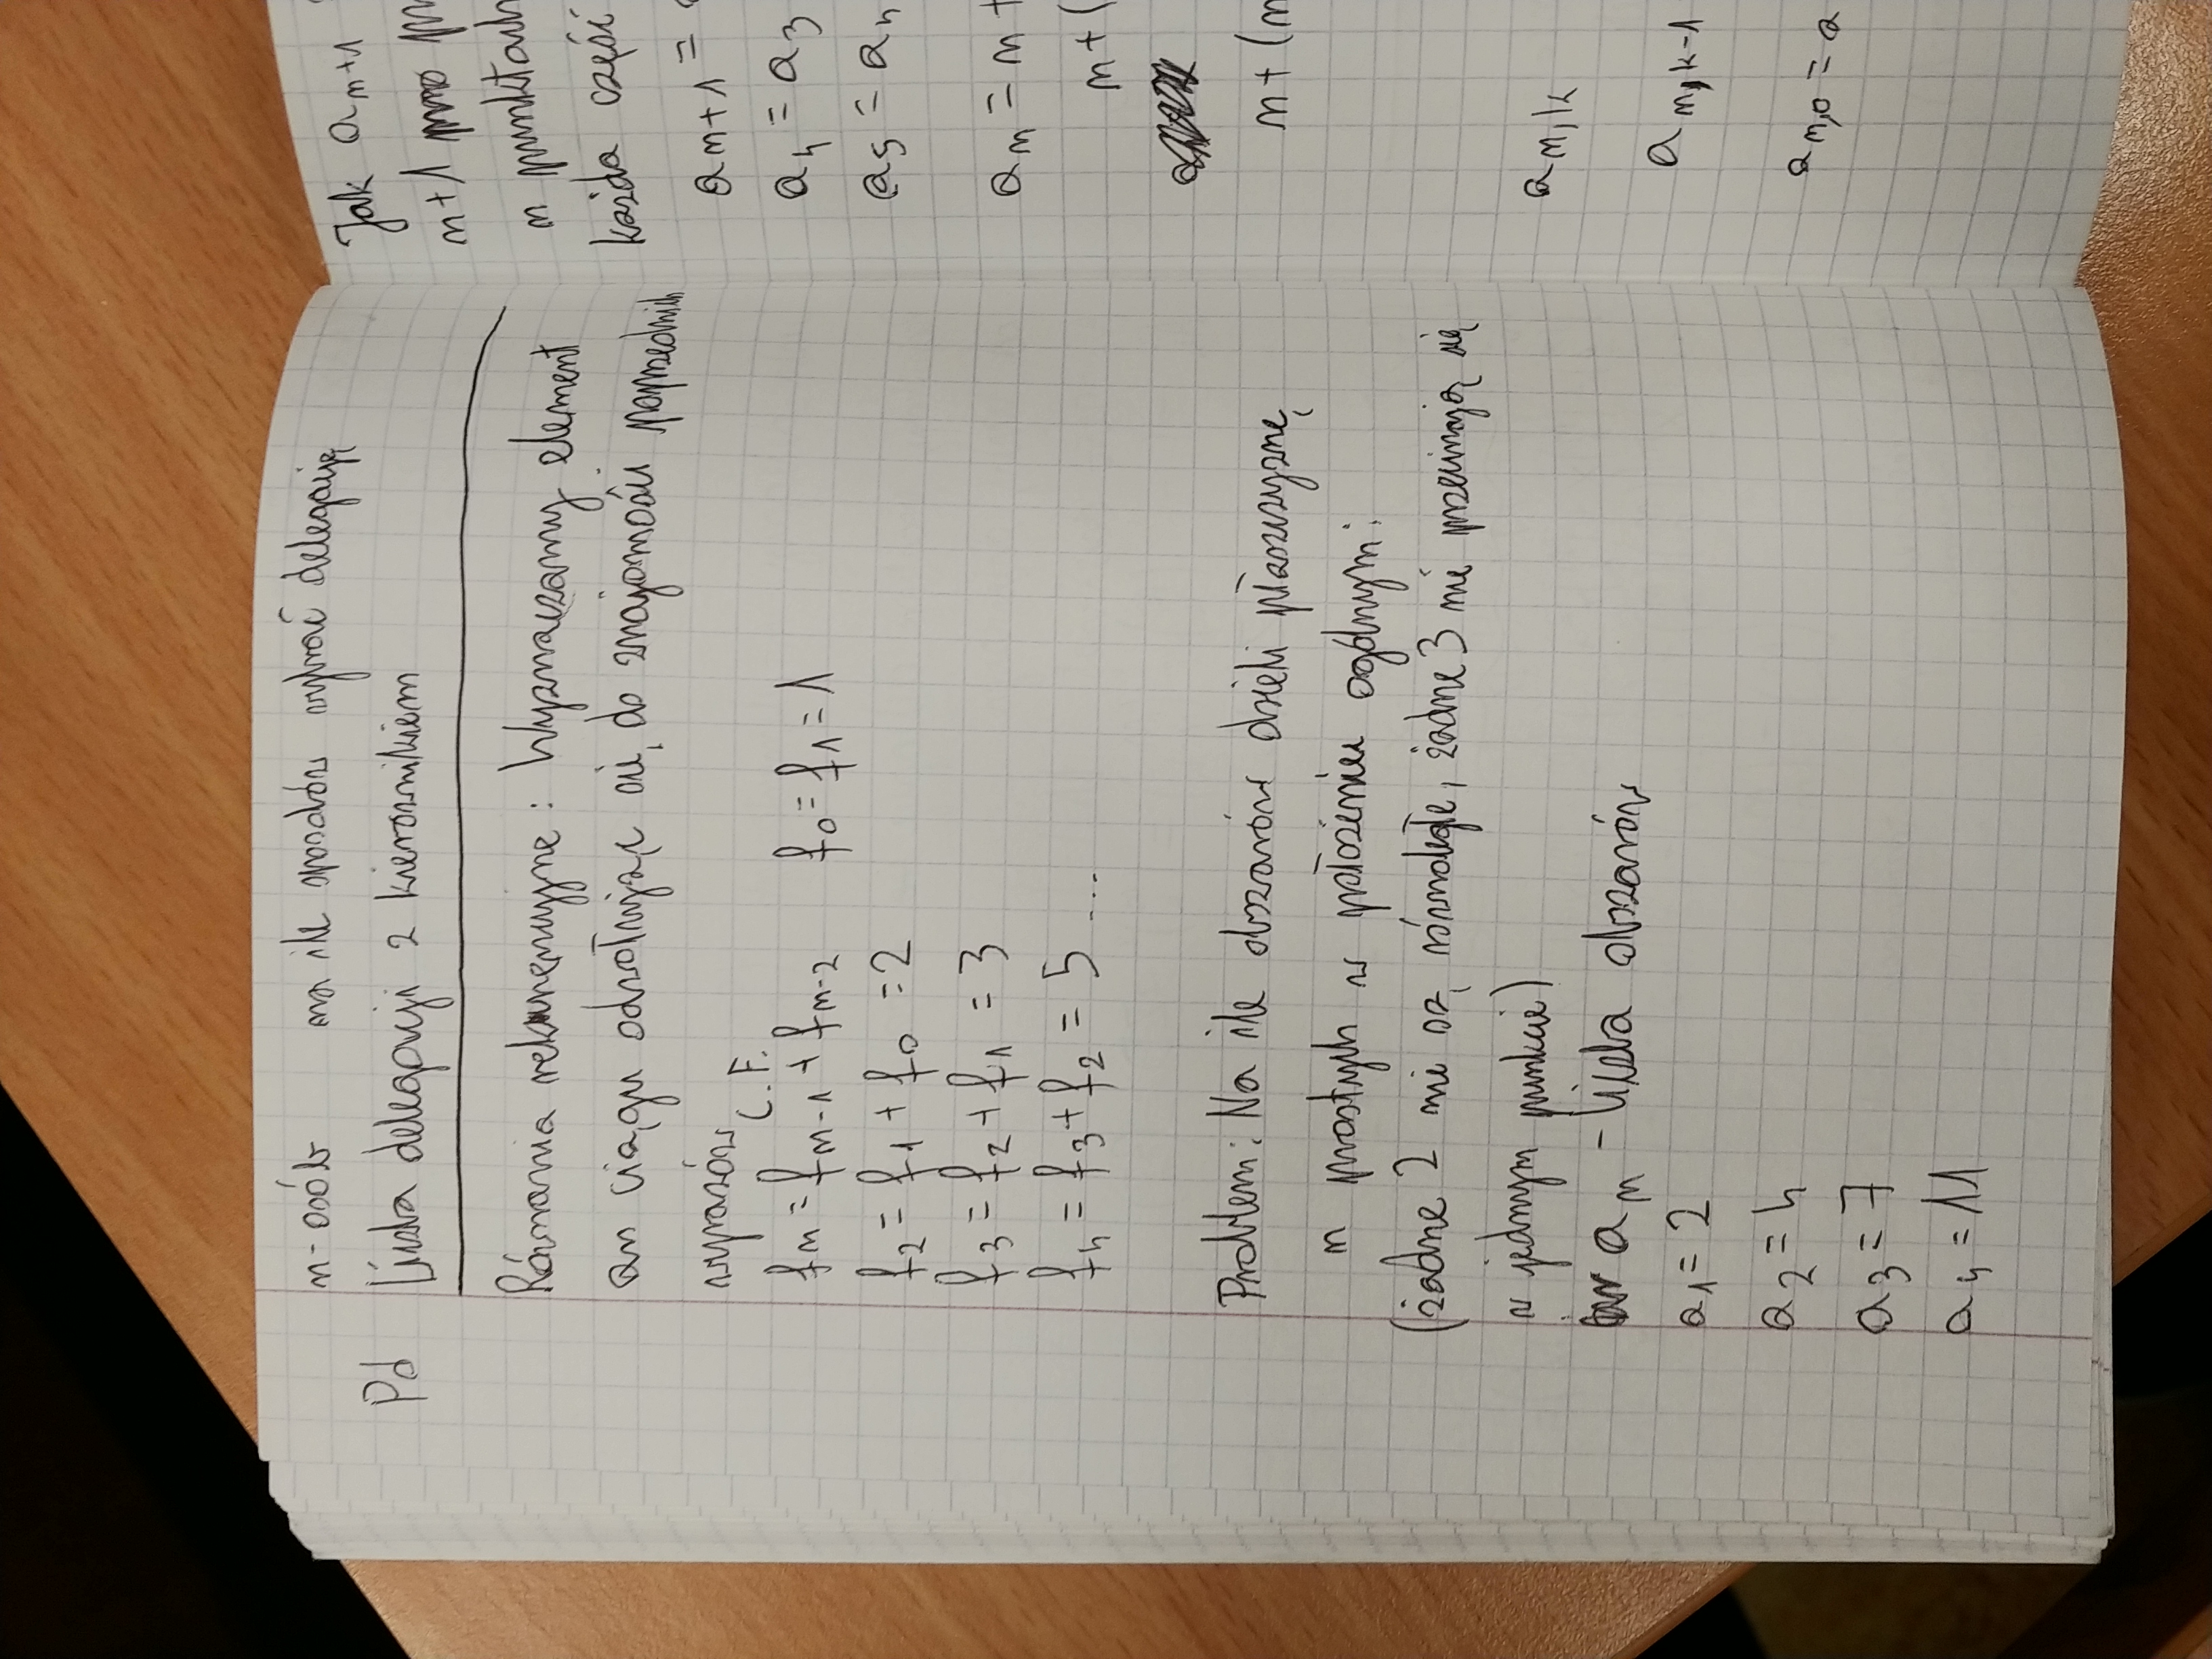 n-osób na ile sposobów wybrać delegację
Pd Liczba delegacji z kierownikiem
Równania rekurencyjne: Wyznaczamy element
an ciągu odwołując się do znajomości poprzednich
wyrazów
C.F.
fn = fn-1 + fn-2 f0 = f1 = 1
f2 = f1 + f0 = 2
f3 = f2 + f1 = 3
f4 = f3 + f2 = 5 ...
Problem: Na ile obszarów dzieli płaszczyznę
n prostych w położeniu ogólnym:
(żadne 2 nie są równoległe, żadne 3 nie przecinają się
w jednym punkcie)
an - liczba obszarów
a1 = 2
a2 = 4
a3 = 7
a4 = 11
Jak an+1
n+1
n punktach
każda część
an+1 =
a4 = a3
a5 = a4
an = n +
n + (
n + (n
an,k
an,k-1
an,0 = a